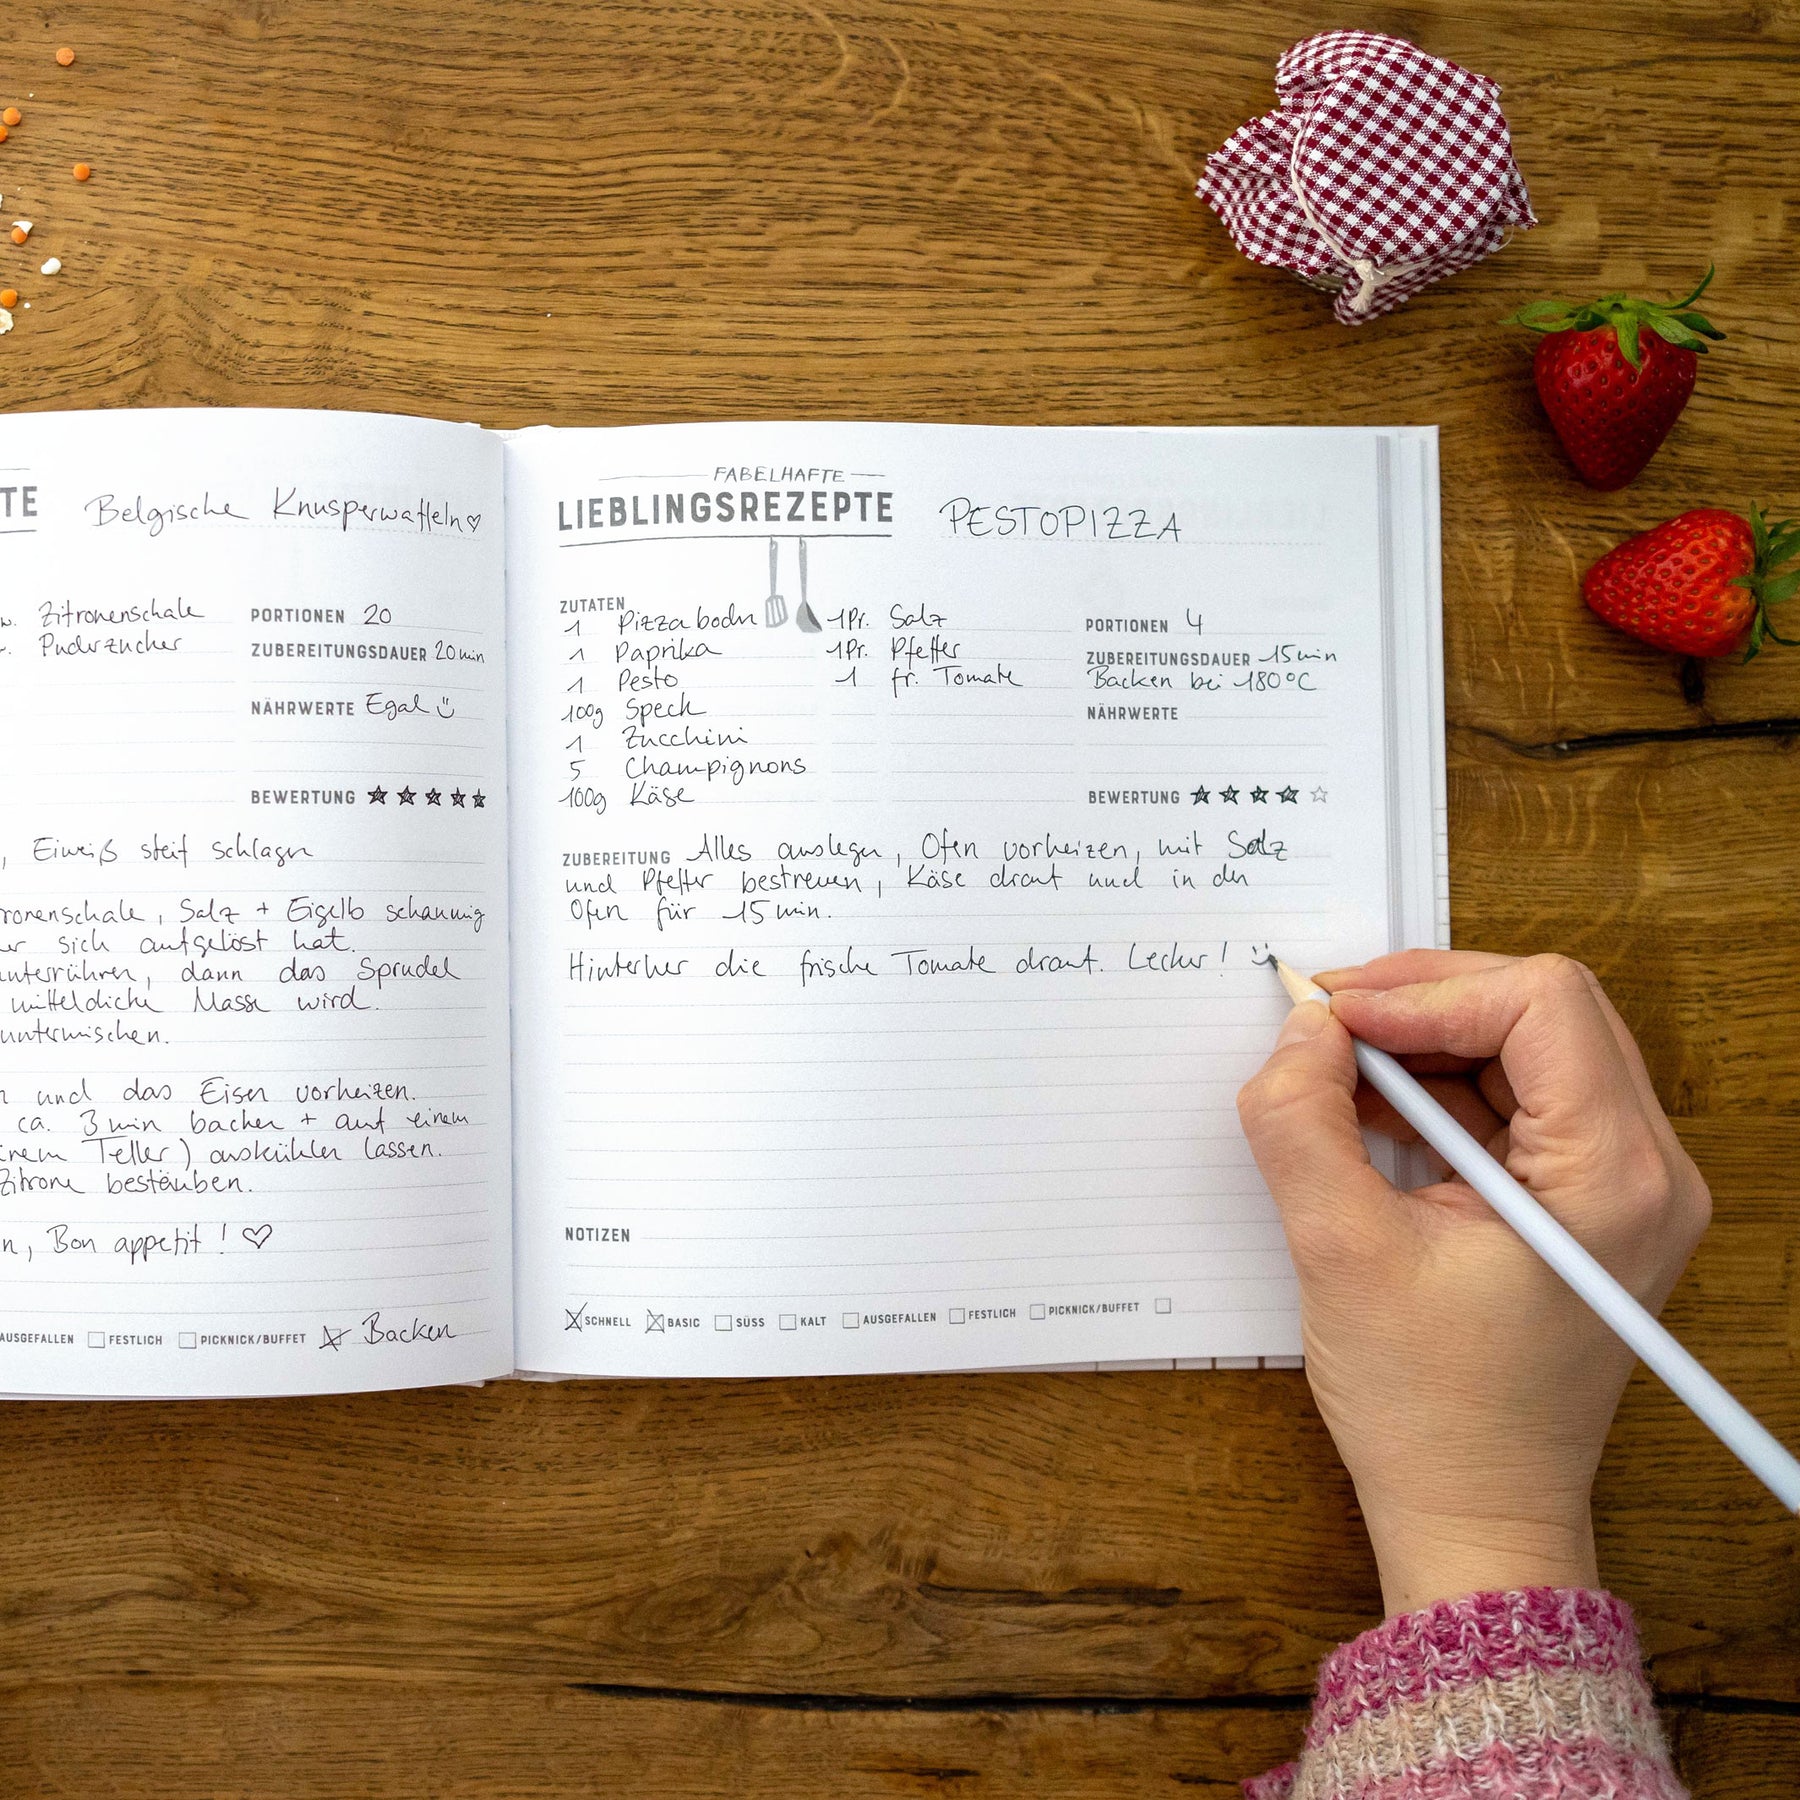 TE Belgische Knusperwaffeln♡
w. Zitronenschale
Puderzucker
PORTIONEN 20
ZUBEREITUNGSDAUER 20min
NÄHRWERTE Egal
BEWERTUNG
, Eiweiß steif schlagen
ronenschale, Salz + Eigelb schaumig
er sich aufgelöst hat.
unterrühren, dann das Sprudel
mitteldicke Masse wird.
untermischen.
n und das Eisen vorheizen.
ca. 3 min backen + auf einem
inem Teller) auskühlen lassen.
Zitrone bestäuben.
n, Bon appetit! ♡
AUSGEFALLEN FESTLICH PICKNICK/BUFFET Backen
FABELHAFTE
LIEBLINGSREZEPTE PESTOPIZZA
ZUTATEN
1 Pizzaboden
1 Paprika
1 Pesto
100g Speck
1 Zucchini
5 Champignons
100g Käse
1Pr. Salz
1Pr. Pfeffer
1 fr. Tomate
PORTIONEN 4
ZUBEREITUNGSDAUER 15min
Backen bei 180°C
NÄHRWERTE
BEWERTUNG
ZUBEREITUNG Alles auslegen, Ofen vorheizen, mit Salz
und Pfeffer bestreuen, Käse drauf und in den
Ofen für 15 min.
Hinterher die frische Tomate drauf. Lecker!
NOTIZEN
SCHNELL BASIC SÜSS KALT AUSGEFALLEN FESTLICH PICKNICK/BUFFET